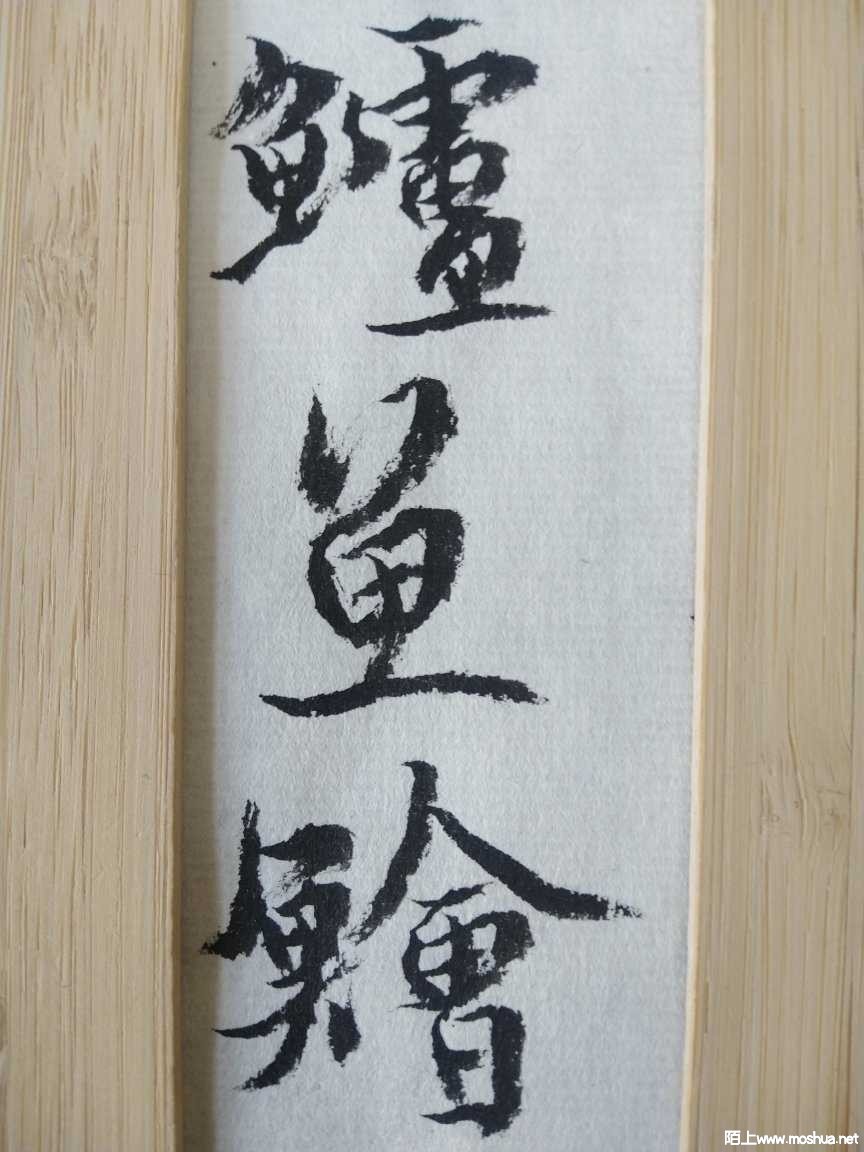 鱸魚鱠
陌上www.moshua.net